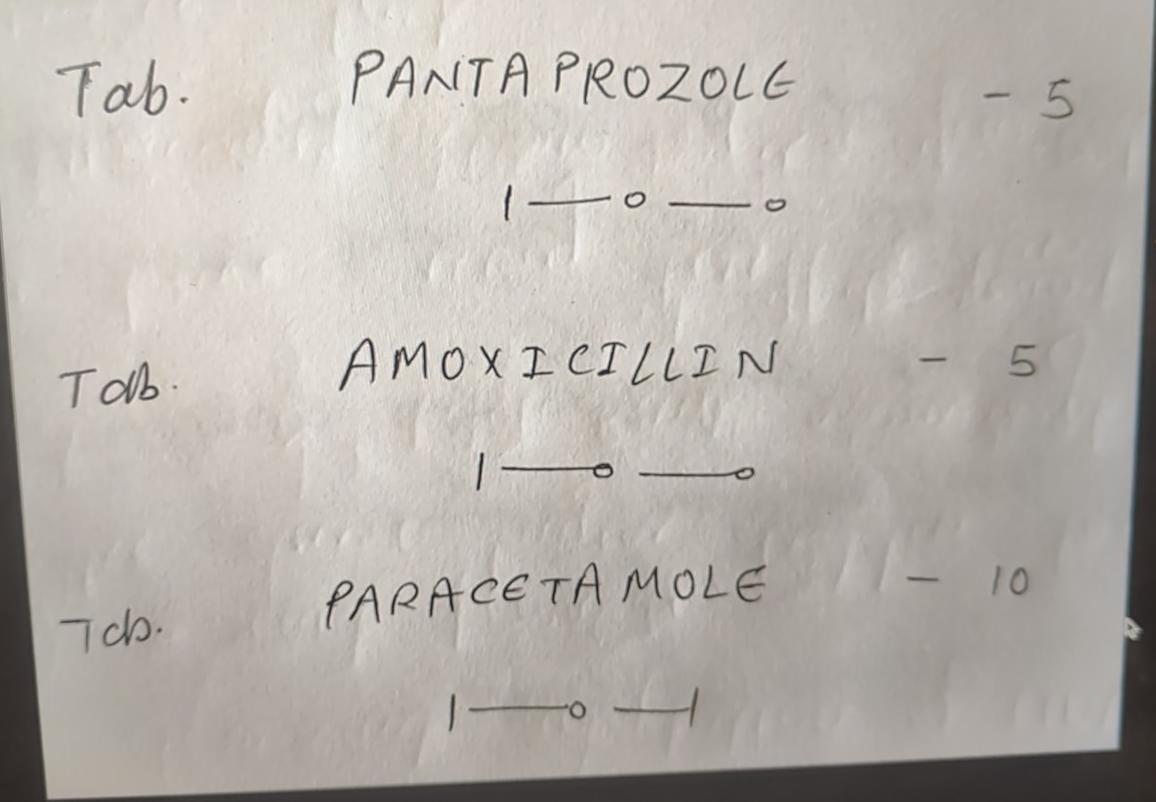 Tab. PANTAPROZOLE - 5
1 — 0 — 0
Tab. AMOXICILLIN - 5
1 — 0 — 0
Tab. PARACETAMOLE - 10
1 — 0 — 1